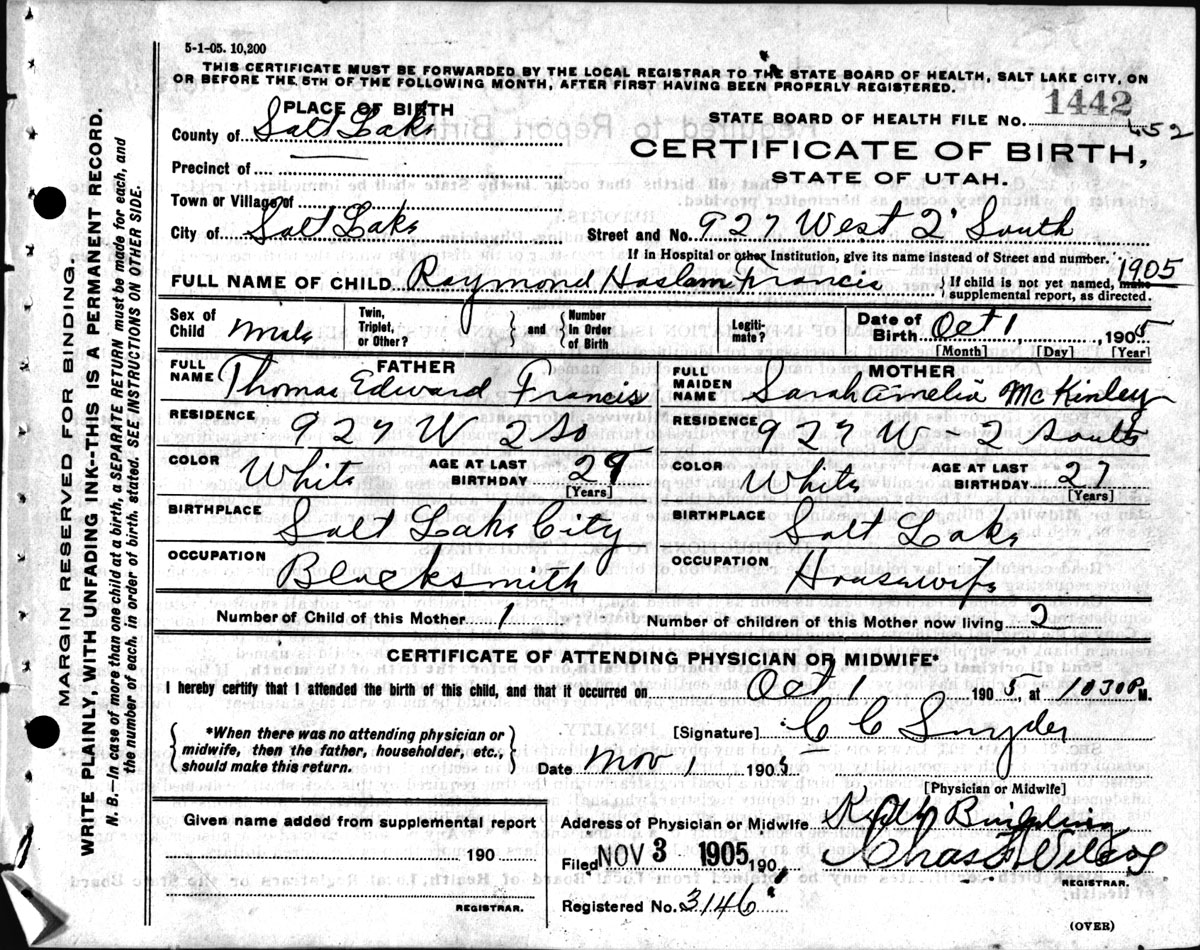 5-1-05. 10,200
THIS CERTIFICATE MUST BE FORWARDED BY THE LOCAL REGISTRAR TO THE STATE BOARD OF HEALTH, SALT LAKE CITY, ON
OR BEFORE THE 5TH OF THE FOLLOWING MONTH, AFTER FIRST HAVING BEEN PROPERLY REGISTERED.
PLACE OF BIRTH
County of Salt Lake
Precinct of
Town or Village of
City of Salt Lake
STATE BOARD OF HEALTH FILE NO. 1442
452
CERTIFICATE OF BIRTH,
STATE OF UTAH.
Street and No. 927 West 2' South
If in Hospital or other Institution, give its name instead of Street and number.
1905
FULL NAME OF CHILD Raymond Haslam Francis } If child is not yet named, make
supplemental report, as directed.
Sex of Child Male
Twin, Triplet, or Other?
} and {
Number In Order of Birth
Legiti- mate?
Date of Birth Oct 1, 1905
[Month] [Day] [Year]
FATHER
FULL NAME Thomas Edward Francis
MOTHER
FULL MAIDEN NAME Sarah Amelia McKinley
RESIDENCE 927 W 2 So
RESIDENCE 927 W 2 South
COLOR White AGE AT LAST BIRTHDAY 29
[Years]
COLOR White AGE AT LAST BIRTHDAY 27
[Years]
BIRTHPLACE Salt Lake City
BIRTHPLACE Salt Lake
OCCUPATION Blacksmith
OCCUPATION Housewife
Number of Child of this Mother 1 Number of children of this Mother now living 2
CERTIFICATE OF ATTENDING PHYSICIAN OR MIDWIFE*
I hereby certify that I attended the birth of this child, and that it occurred on Oct 1 1905 at 1030 P M.
*When there was no attending physician or
midwife, then the father, householder, etc.,
should make this return.
[Signature] C C Snyder
Date Nov 1 1905
[Physician or Midwife]
Given name added from supplemental report
190
REGISTRAR.
Address of Physician or Midwife Building
Filed NOV 3 1905 190 Chas F Wilcox
REGISTRAR.
Registered No. 3146
(OVER)
MARGIN RESERVED FOR BINDING
WRITE PLAINLY, WITH UNFADING INK--THIS IS A PERMANENT RECORD.
N. B.—In case of more than one child at a birth, a SEPARATE RETURN must be made for each, and
the number of each, in order of birth, stated. SEE INSTRUCTIONS ON OTHER SIDE.